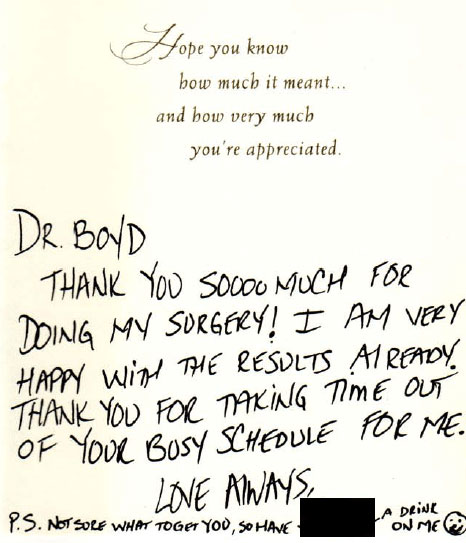 Hope you know
how much it meant...
and how very much
you're appreciated.
DR. BOYD
THANK YOU SOOOO MUCH FOR
DOING MY SURGERY! I AM VERY
HAPPY WITH THE RESULTS ALREADY.
THANK YOU FOR TAKING TIME OUT
OF YOUR BUSY SCHEDULE FOR ME.
LOVE ALWAYS,
P.S. NOT SURE WHAT TO GET YOU, SO HAVE A DRINK
ON ME